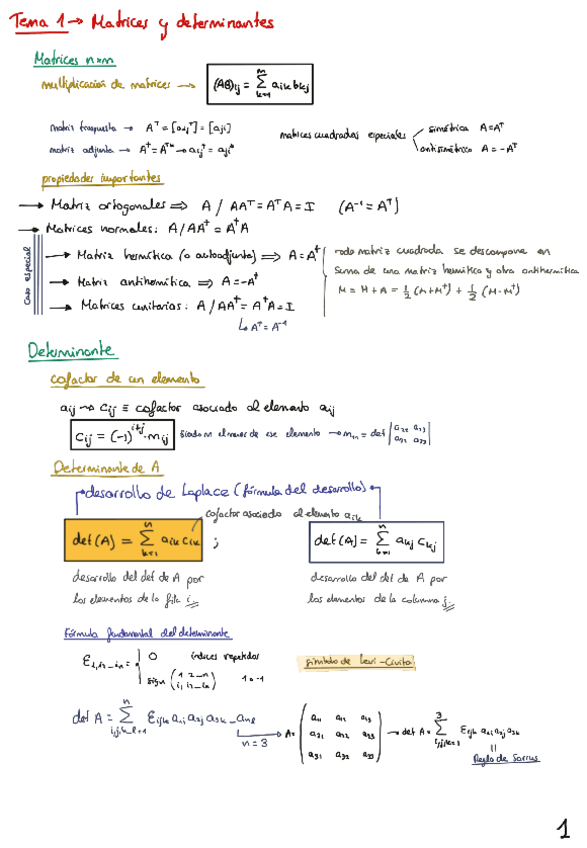 Tema 1 → Matrices y determinantes
Matrices n×m
multiplicación de matrices → (AB)ij = Σ_{k=1}^{m} aik bkj
matriz traspuesta → Aᵀ = [aijᵀ] = [aji]
matriz adjunta → A† = Aᵀ* → aij† = aji*
matrices cuadradas especiales
simétrica A=Aᵀ
antisimétrica A=-Aᵀ
propiedades importantes
→ Matriz ortogonales ⇒ A / AAᵀ = AᵀA = I (A⁻¹ = Aᵀ)
→ Matrices normales: A / AA† = A†A
caso especial
→ Matriz hermítica (o autoadjunta) ⇒ A = A†
→ Matriz antihermítica ⇒ A = -A†
→ Matrices unitarias: A / AA† = A†A = I
↳ A† = A⁻¹
toda matriz cuadrada se descompone en
suma de una matriz hermítica y otra antihermítica
M = H + A = ½ (M+M†) + ½ (M-M†)
Determinante
cofactor de un elemento
aij → Cij ≡ cofactor asociado al elemento aij
Cij = (-1)^{i+j} · mij
siendo m el menor de ese elemento → m₁₁ = det |a₂₂ a₂₃
a₃₂ a₃₃|
Determinante de A
desarrollo de Laplace (fórmula del desarrollo)
cofactor asociado al elemento aik
det(A) = Σ_{k=1}^{n} aik cik ;
det(A) = Σ_{k=1}^{n} akj ckj
desarrollo del det de A por
los elementos de la fila i
desarrollo del det de A por
los elementos de la columna j
Fórmula fundamental del determinante
Ei₁i₂…in =
0 índices repetidos
sign (1 2 … n
i₁ i₂ … in) 1 o -1
símbolo de Levi-Civita
det A = Σ_{i,j,k…l=1}^{n} Eijk a1i a2j a3k … anl
n = 3
A = (a₁₁ a₁₂ a₁₃
a₂₁ a₂₂ a₂₃
a₃₁ a₃₂ a₃₃)
→ det A = Σ_{i,j,k=1}^{3} Eijk a1i a2j a3k
||
Regla de Sarrus
1